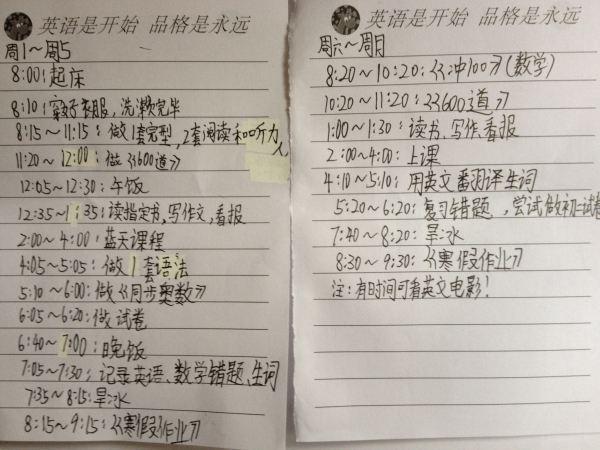 英语是开始 品格是永远
周1~周5
8:00:起床
8:10:穿好衣服,洗漱完毕
8:15~11:15:做1套完型,2套阅读和听力
11:20~12:00:做《600道》
12:05~12:30:午饭
12:35~1:35:读指定书,写作文,看报
2:00~4:00:蓝天课程
4:05~5:05:做1套语法
5:10~6:00:做《同步奥数》
6:05~6:20:做试卷
6:40~7:00:晚饭
7:05~7:30:记录英语、数学错题、生词
7:35~8:15:
8:15~9:15:《寒假作业》
英语是开始 品格是永远
周六~周日
8:20~10:20:《冲100》(数学)
10:20~11:20:《600道》
1:00~1:30:读书、写作、看报
2:00~4:00:上课
4:10~5:10:用英文翻译生词
5:20~6:20:复习错题,尝试做初一试卷
7:40~8:20:
8:30~9:30:《寒假作业》
注:有时间可看英文电影!